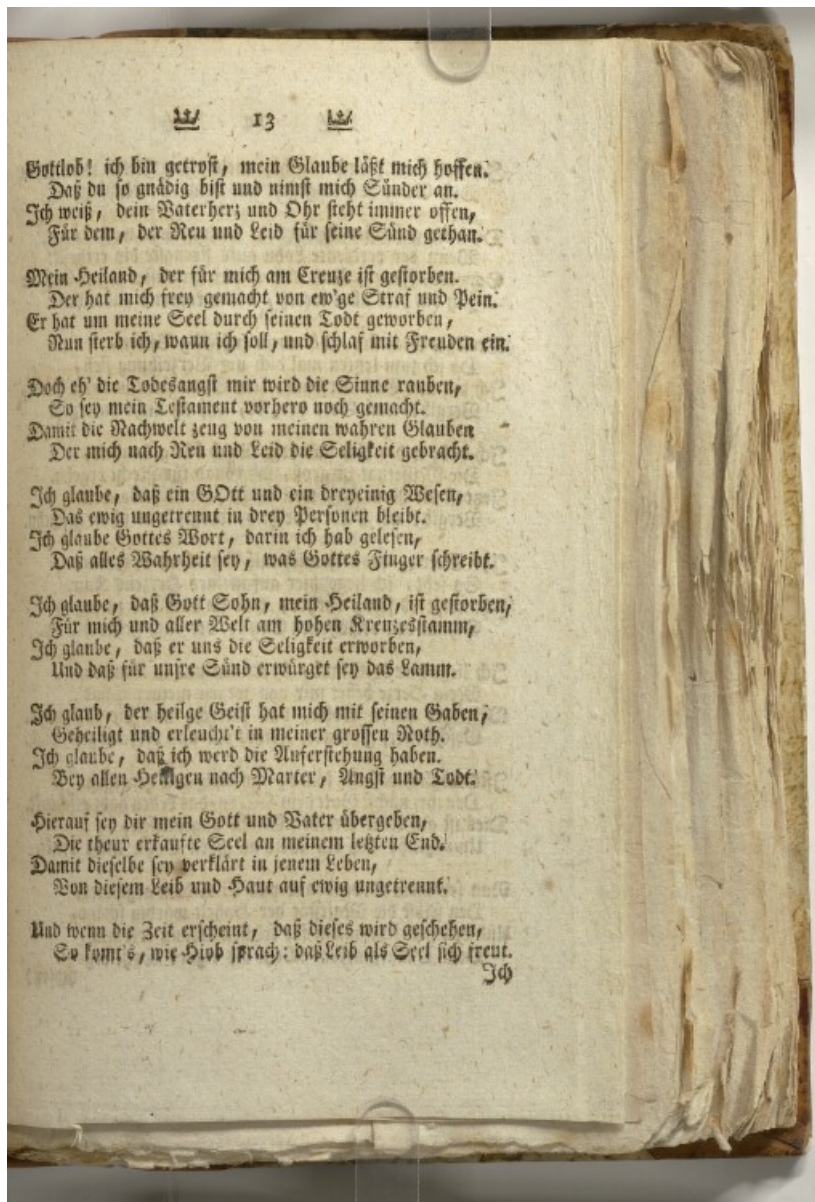 13
Gottlob! ich bin getrost, mein Glaube läßt mich hoffen.
Daß du so gnädig bist und nimst mich Sünder an.
Ich weiß, dein Vaterherz und Ohr steht immer offen,
Für dem, der Reu und Leid für seine Sünd gethan.
Mein Heiland, der für mich am Creuze ist gestorben.
Der hat mich frey gemacht von ew'ge Straf und Pein.
Er hat um meine Seel durch seinen Todt geworben,
Nun sterb ich, wann ich soll, und schlaf mit Freuden ein.
Doch eh' die Todesangst mir wird die Sinne rauben,
So sey mein Testament vorhero noch gemacht.
Damit die Nachwelt zeug von meinen wahren Glauben
Der mich nach Reu und Leid die Seligkeit gebracht.
Ich glaube, daß ein GOtt und ein dreyeinig Wesen,
Das ewig ungetrennt in drey Personen bleibt.
Ich glaube Gottes Wort, darin ich hab gelesen,
Daß alles Wahrheit sey, was Gottes Finger schreibt.
Ich glaube, daß Gott Sohn, mein Heiland, ist gestorben,
Für mich und aller Welt am hohen Kreuzesstamm,
Ich glaube, daß er uns die Seligkeit erworben,
Und daß für unsre Sünd erwürget sey das Lamm.
Ich glaub, der heilge Geist hat mich mit seinen Gaben,
Geheiligt und erleucht't in meiner grossen Noth.
Ich glaube, daß ich werd die Auferstehung haben.
Bey allen Heiligen nach Marter, Angst und Todt.
Hierauf sey dir mein Gott und Vater übergeben,
Die theur erkaufte Seel an meinem letzten End.
Damit dieselbe sey verklärt in jenem Leben,
Von diesem Leib und Haut auf ewig ungetrennt.
Und wenn die Zeit erscheint, daß dieses wird geschehen,
So komt's, wie Hiob sprach: daß Leib als Seel sich freut.
Ich